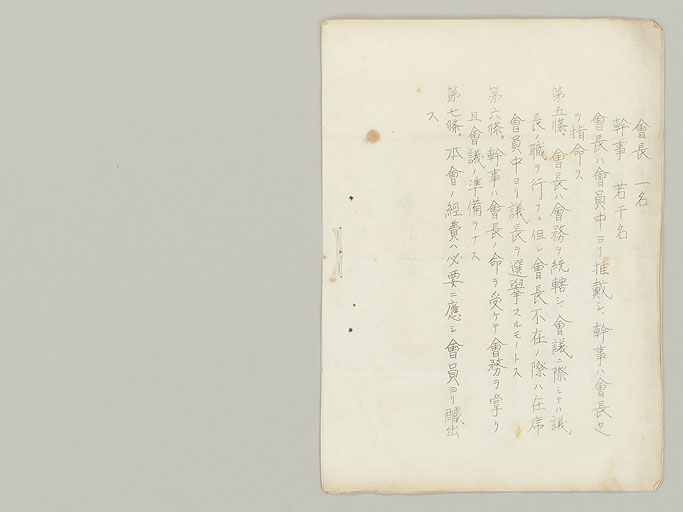 會長　一名
幹事　若干名
會長ハ會員中ヨリ推戴シ、幹事ハ會長之
ヲ指命ス
第五條。會長ハ會務ヲ統轄シ、會議ニ際シテハ議
長ノ職ヲ行フ。但シ會長不在ノ際ハ在席
會員中ヨリ議長ヲ選擧スルモノトス
第六條。幹事ハ會長ノ命ヲ受ケテ會務ヲ掌リ
且會議ノ準備ヲナス
第七條。本會ノ經費ハ必要ニ應シ會員ヨリ醵出
ス